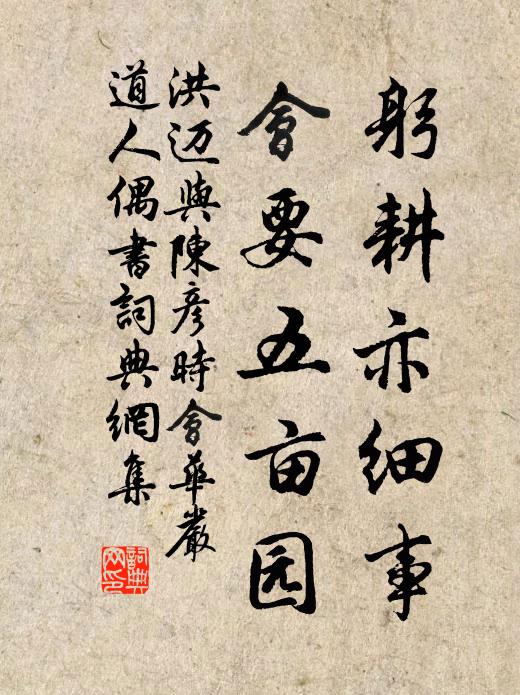 躬耕亦细事
會要五亩园
洪迈與陳彦時會華嚴
道人偶書詞典網集
詞典網印